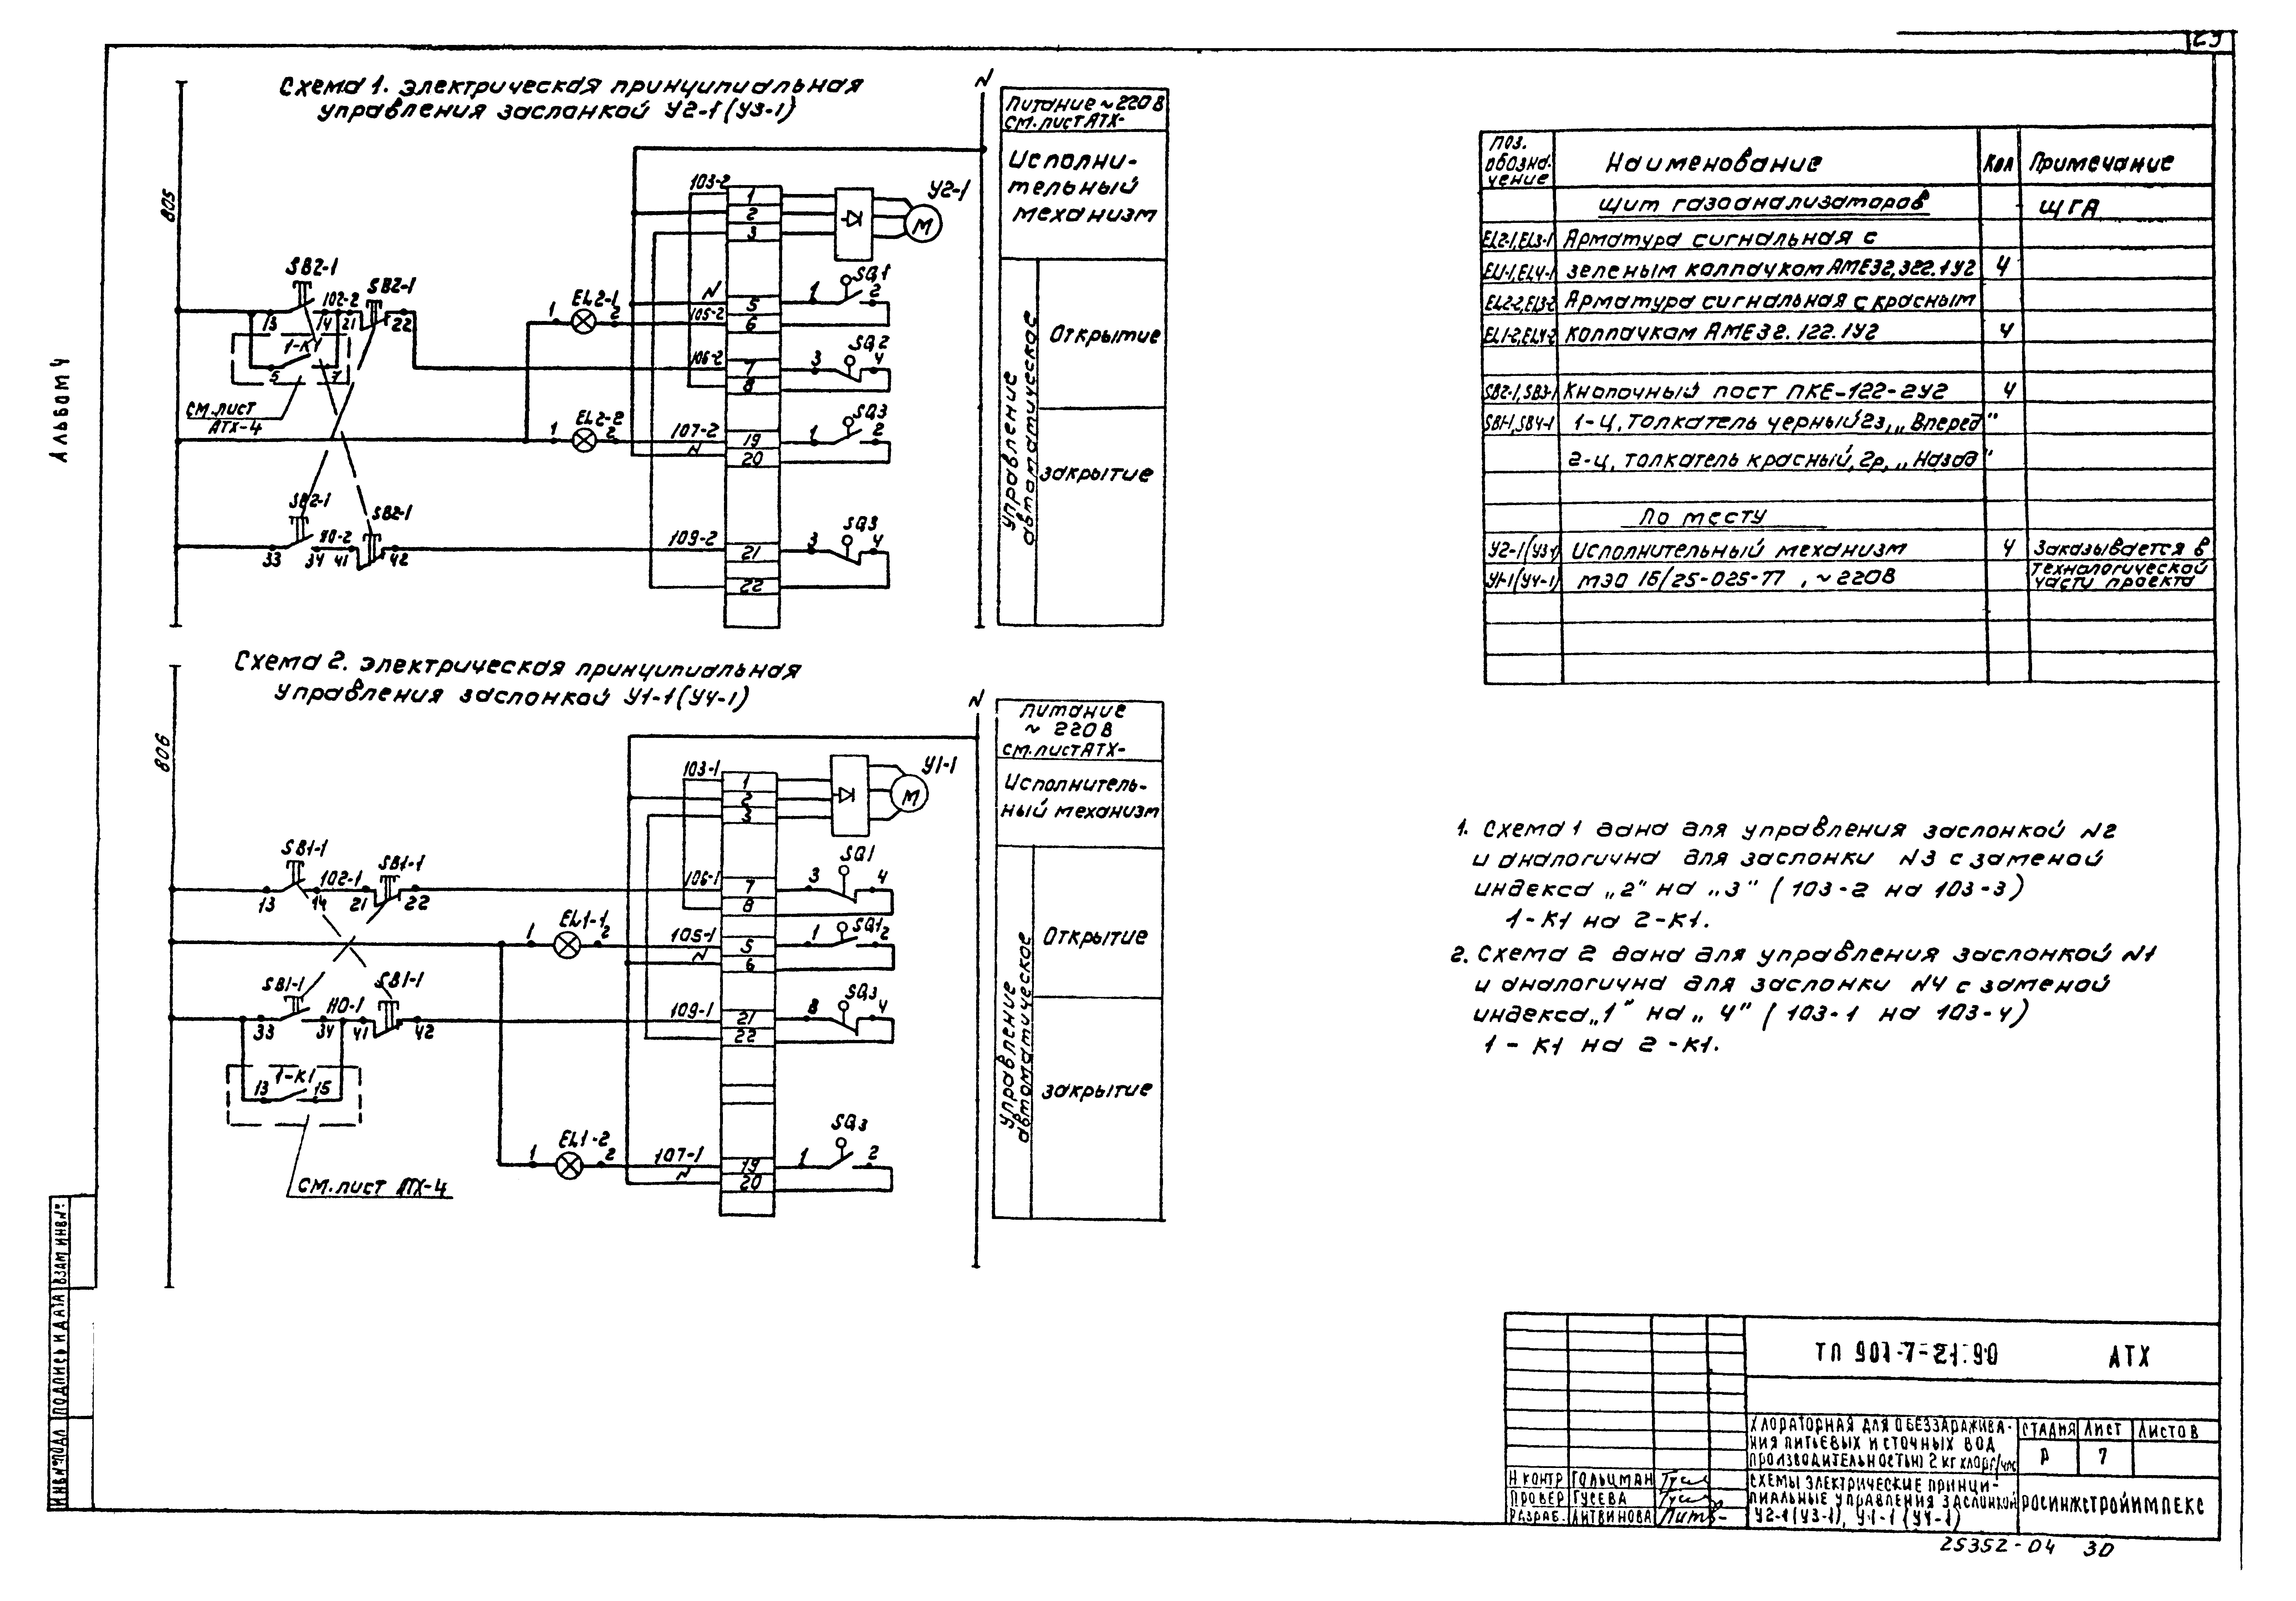 Альбом 4
Схема 1. Электрическая принципиальная
управления заслонкой У2-1(У3-1)
N
805
SB2-1
13
14
102-2
21
SB2-1
22
1-К1
5
7
см.лист
АТХ-4
SB2-1
33
34
41
SB2-1
42
1
EL2-1
2
1
EL2-2
2
103-2
N
105-2
106-2
107-2
N
109-2
1
2
3
5
6
7
8
19
20
21
22
У2-1
М
1
SQ1
2
3
SQ2
4
1
SQ3
2
3
SQ3
4
Питание ~220В
см.лист АТХ-
Исполни-
тельный
механизм
Управление
автоматическое
Открытие
Закрытие
Схема 2. Электрическая принципиальная
управления заслонкой У1-1(У4-1)
N
806
SB1-1
13
14
102-1
21
SB1-1
22
SB1-1
33
34
41
SB1-1
42
1-К1
13
15
см.лист АТХ-4
1
EL1-1
2
1
EL1-2
2
103-1
106-1
105-1
N
109-1
107-1
N
1
2
3
7
8
5
6
21
22
19
20
У1-1
М
3
SQ1
4
1
SQ1
2
SQ3
4
1
SQ3
2
Питание
~ 220В
см.лист АТХ-
Исполнитель-
ный механизм
Управление
автоматическое
Открытие
Закрытие
Поз. обозна-чение Наименование Кол Примечание
Щит газоанализаторов ЩГА
EL2-1,EL3-1 Арматура сигнальная с
EL1-1,EL4-1 зеленым колпачком АМЕ32,322.1У2 4
EL2-2,EL3-2 Арматура сигнальная с красным
EL1-2,EL4-2 колпачкам АМЕ32.122.1У2 4
SB2-1,SB3-1 Кнопочный пост ПКЕ-122-2У2 4
SB1-1,SB4-1 1-Ц, толкатель черный 2з, „Вперед"
2-ц, толкатель красный, 2р, „Назад"
По месту
У2-1(У3-1) Исполнительный механизм 4 Заказывается в
У1-1(У4-1) МЭО 16/25-025-77, ~220В технологической
части проекта
1. Схема 1 дана для управления заслонкой N2
и аналогична для заслонки N3 с заменой
индекса „2" на „3" (103-2 на 103-3)
1-К1 на 2-К1.
2. Схема 2 дана для управления заслонкой N1
и аналогична для заслонки N4 с заменой
индекса „1" на „4" (103-1 на 103-4)
1-К1 на 2-К1.
ТП 901-7-21.90 АТХ
Хлораторная для обеззаражива-
ния питьевых и сточных вод
производительностью 2 кг хлора/час
Стадия Лист Листов
Р 7
Н контр Гольцман
Провер Гусева
Разраб. Литвинова
Схемы электрические принци-
пиальные управления заслонкой
У2-1(У3-1), У1-1(У4-1)
Росинжстройимпекс
25352-04 30
Инв№подл Подпись и дата Взам инв№